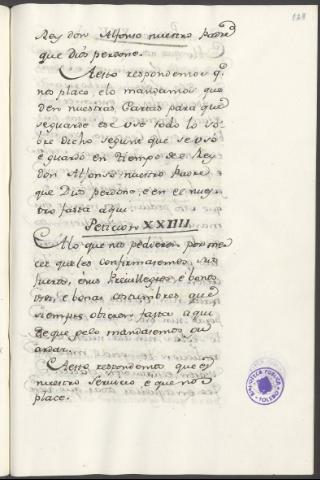 Rey don Alfonso nuestro Padre
que Dios perdone.
A esto respondemos q.
nos place, e lo mandamos que
den nuestras Cartas para que
se guarde ese uso todo lo so-
bre dicho segunt que se usó
e guardó en tiempo de el Rey
don Alfonso nuestro Padre
que Dios perdone, e en el nues-
tro fasta aqui
Peticion XXIIII
A lo que nos pedieron por mer-
cet que les confirmaremos, sus
fueros, e sus Previllegios, e bonos
usos, e bonas costumbres que
siempre obieron fasta aqui
e que gelo mandaremos gu-
ardar.
A esto respondemos que es
nuestro servicio e que nos
place.
BIBLIOTECA PUBLICA
TOLEDO